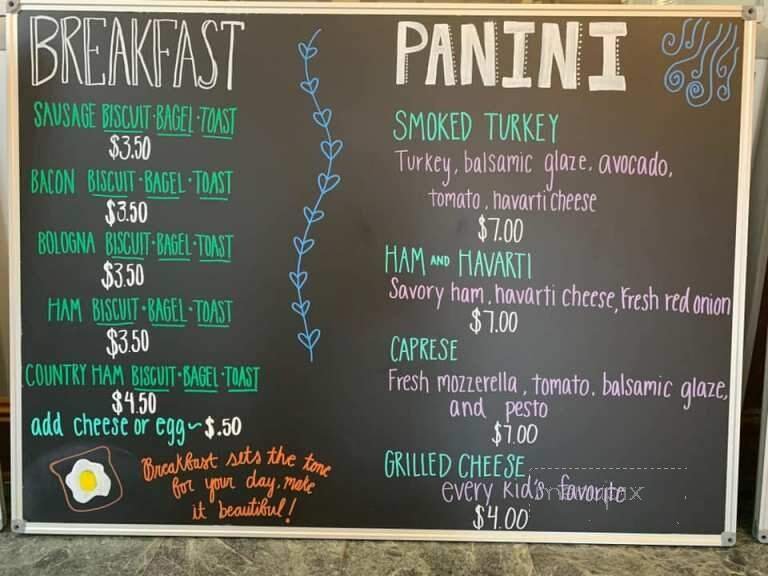 BREAKFAST
SAUSAGE BISCUIT·BAGEL·TOAST
$3.50
BACON BISCUIT·BAGEL·TOAST
$3.50
BOLOGNA BISCUIT·BAGEL·TOAST
$3.50
HAM BISCUIT·BAGEL·TOAST
$3.50
COUNTRY HAM BISCUIT·BAGEL·TOAST
$4.50
add cheese or egg~$.50
Breakfast sets the tone
for your day, make
it beautiful!
PANINI
SMOKED TURKEY
Turkey, balsamic glaze, avocado,
tomato, havarti cheese
$7.00
HAM AND HAVARTI
Savory ham, havarti cheese, Fresh red onion
$7.00
CAPRESE
Fresh mozzerella, tomato, balsamic glaze,
and pesto
$7.00
GRILLED CHEESE
every kid's favorite
$4.00